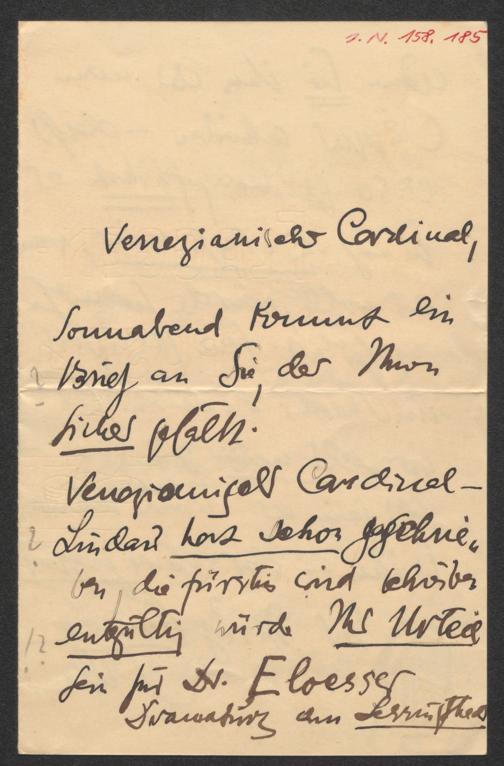 J. N. 158.185
Venezianischer Cardinal,
Sonnabend kommt ein
Brief an Sie, der Ihnen
sicher gefällt.
Venezianischer Cardinal –
Lindau hat schon geschrie„
ben, die fürstin wird schreiben
entgültig würde Ihr Urteil
sein für Dr. Eloesser
Dramaturg am Lessingtheater